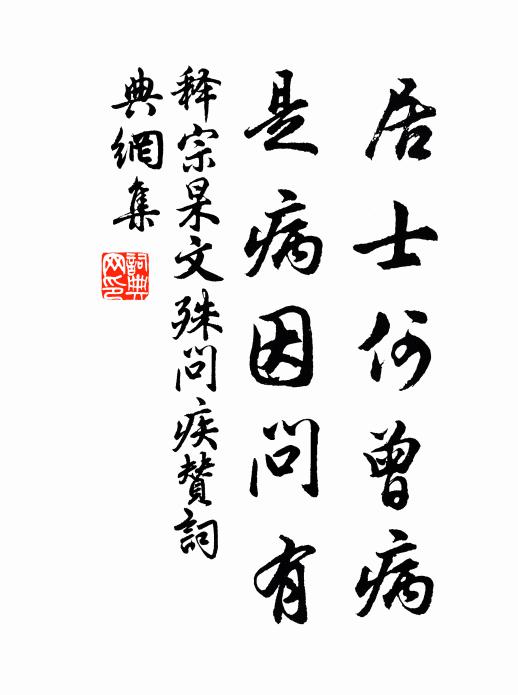 居士何曾病
是病因問有
释宗杲文殊問疾贊詞
典網集
詞典网印